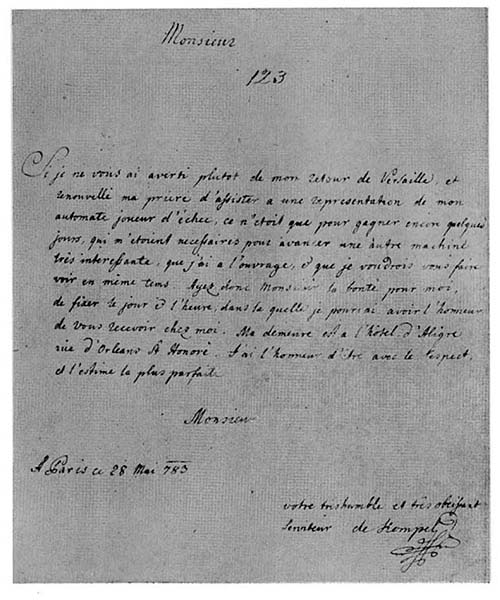 Monsieur
123
Si je ne vous ai averti plutot de mon retour de Versaille, et
renouvellé ma prière d'assister a une representation de mon
automate joueur d'échec, ce n'étoit que pour gagner encor quelques
jours, qui m'etoient necessaires pour avancer une autre machine
très interessante, que j'ai a l'ouvrage, & que je voudrois vous faire
voir en même tems. Ayez donc Monsieur la bonté pour moi,
de fixer le jour & l'heure, dans la quelle je pourai avoir l'honneur
de vous recevoir chez moi. Ma demeure est a l'hôtel d'Aligre
rüe d'Orleans St Honoré. J'ai l'honneur d'être avec le respect,
et l'estime la plus parfaite
Monsieur
A Paris ce 28 Mai 783
votre treshumble et très obeissant
Serviteur de Kempelen